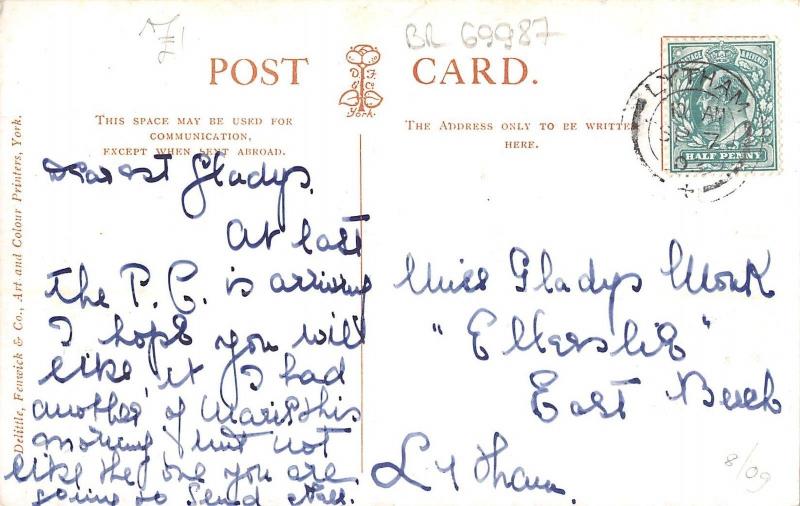 BR 69987
POST CARD.
D F
& Co
York.
THIS SPACE MAY BE USED FOR
COMMUNICATION,
EXCEPT WHEN SENT ABROAD.
THE ADDRESS ONLY TO BE WRITTEN
HERE.
POSTAGE & REVENUE
HALF PENNY
LYTHAM
12 AM
Delittle, Fenwick & Co., Art and Colour Printers, York.
Dearest Gladys.
At last
the P. C. is arriving
I hope you will
like it I had
another of this
morning but not
like the one you are
going to send
Miss Gladys Monk
"Ellerslie"
East Beach
Lytham.
8/09